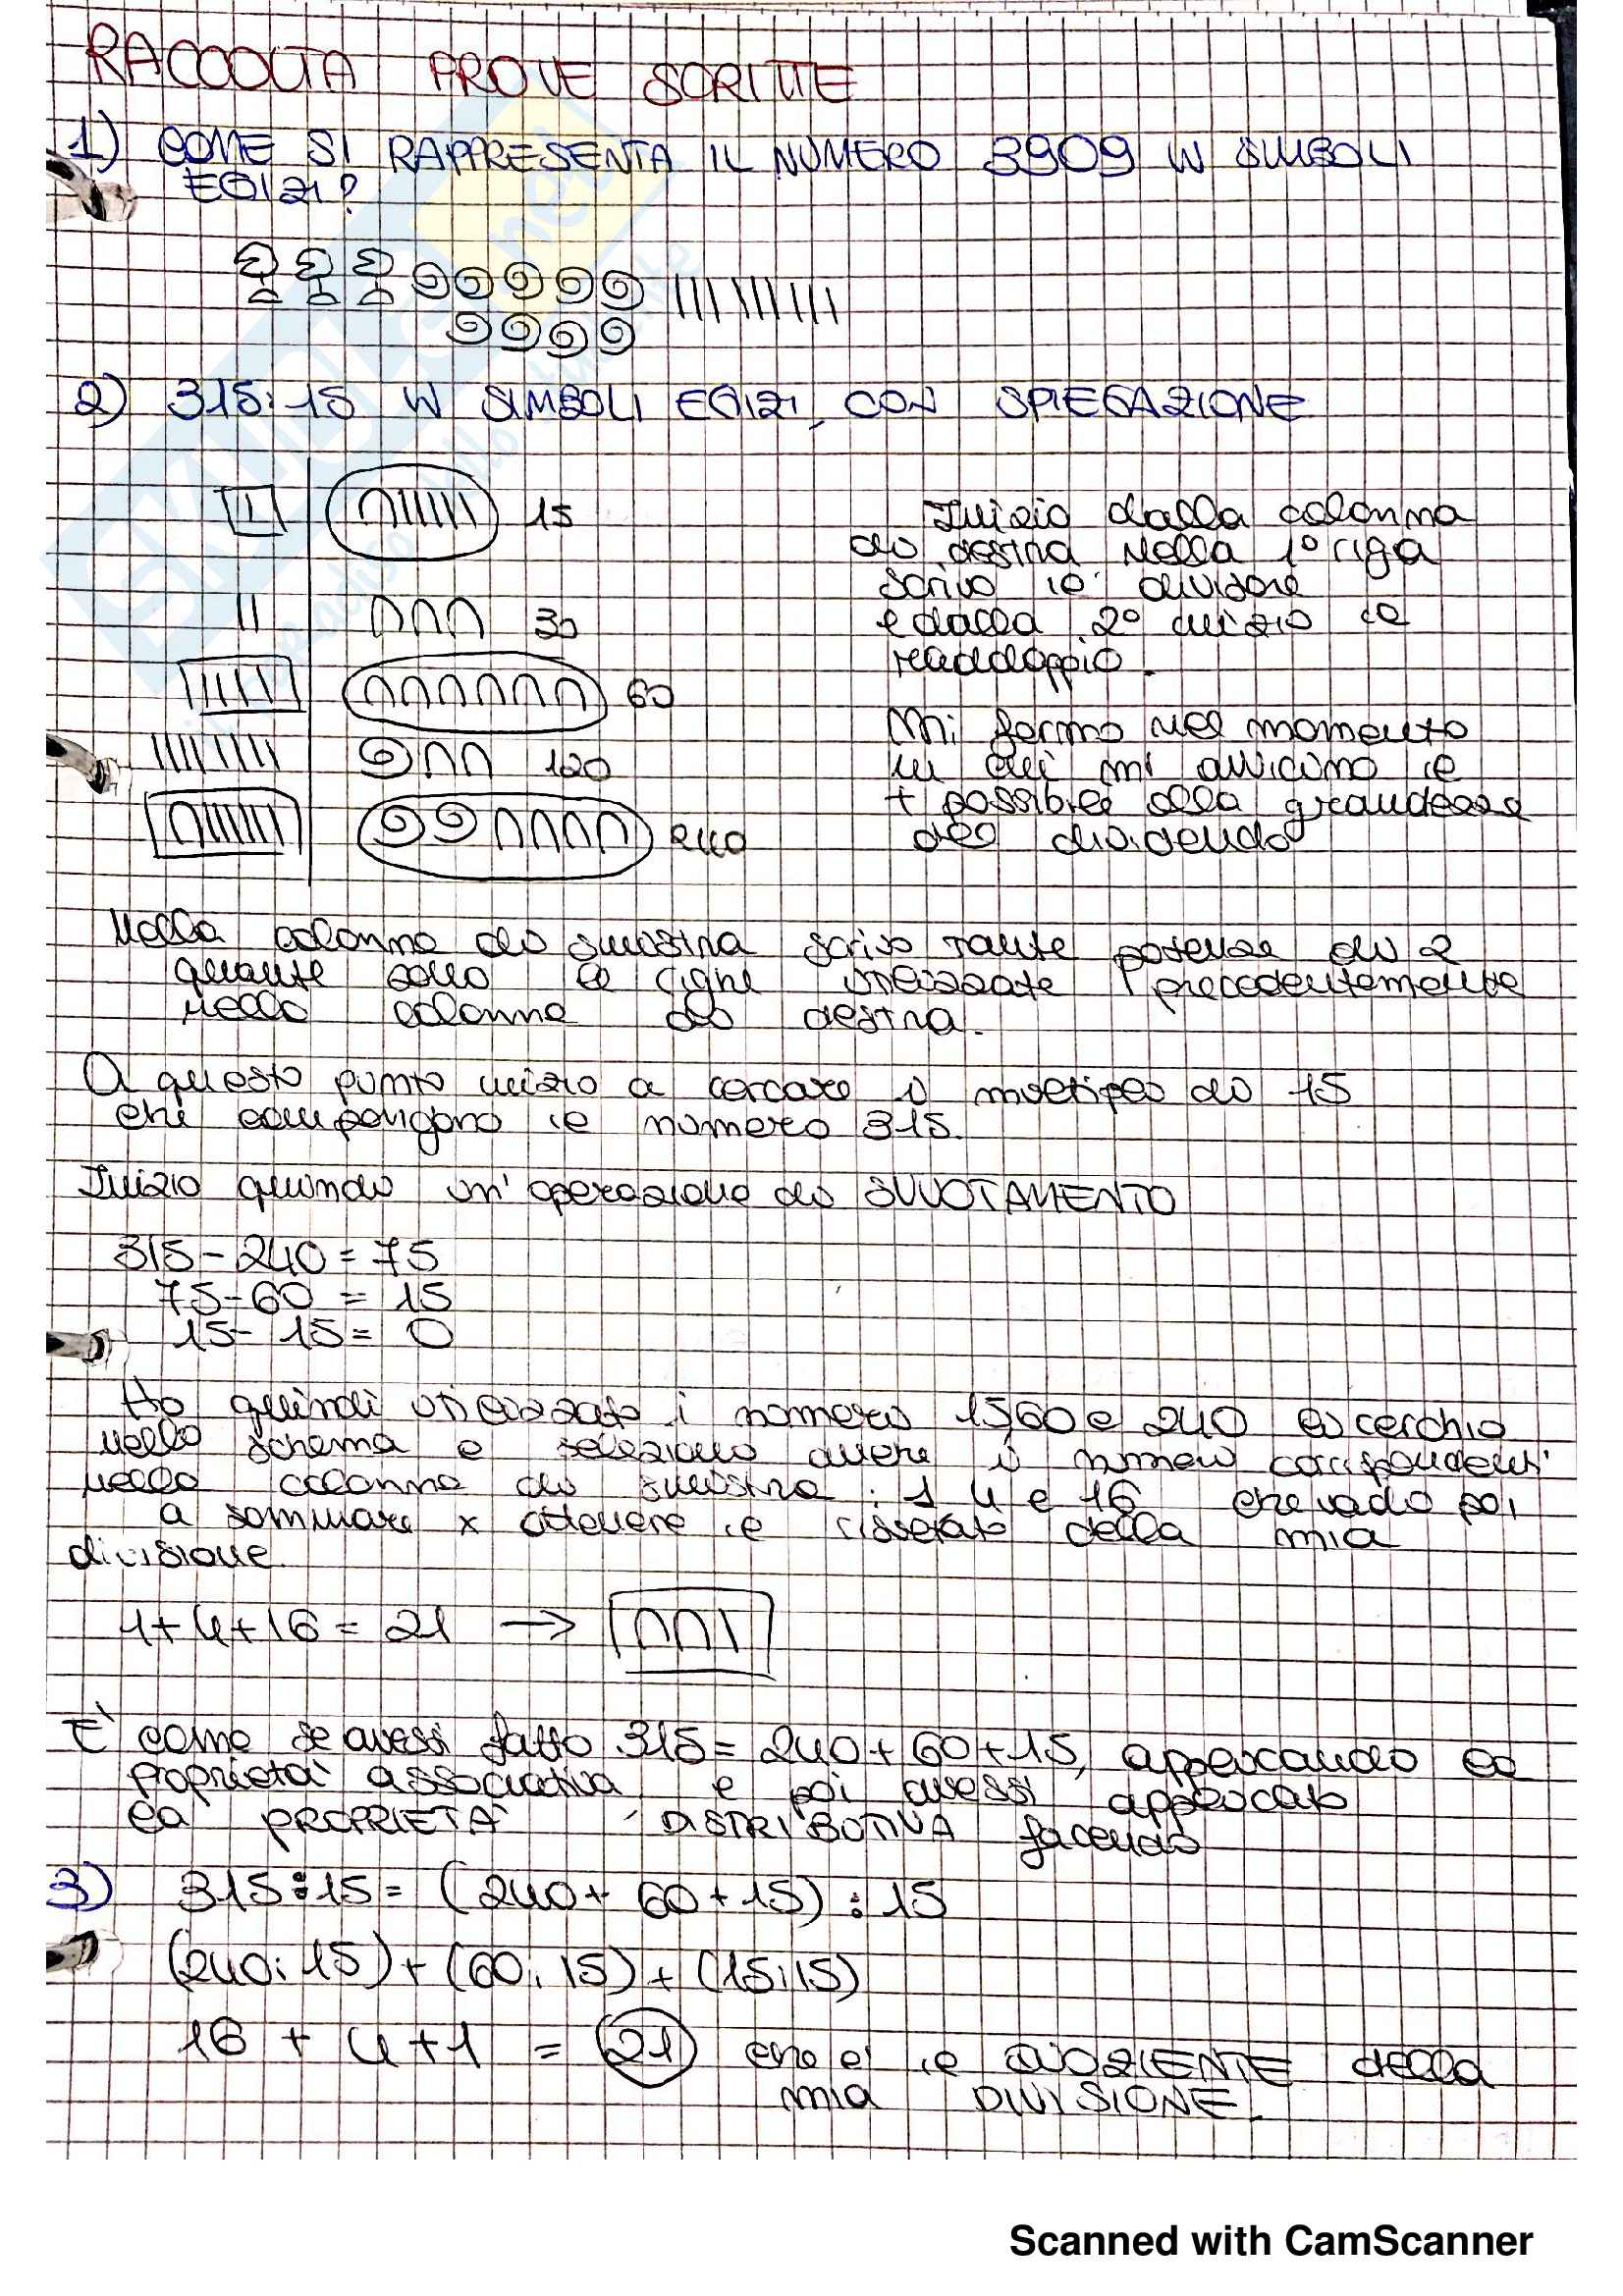 RACCOLTA PROVE SCRITTE
1) COME SI RAPPRESENTA IL NUMERO 3909 IN SIMBOLI
EGIZI?
2) 315:15 IN SIMBOLI EGIZI, CON SPIEGAZIONE
15
30
60
120
240
Inizio dalla colonna
di destra nella 1° riga
scrivo il divisore
e dalla 2° inizio il
raddoppio.
Mi fermo nel momento
in cui mi avvicino il
+ possibile alla grandezza
del dividendo
Nella colonna di sinistra scrivo tante potenze di 2
quante sono le righe utilizzate precedentemente
nella colonna di destra.
A questo punto inizio a cercare i multipli di 15
che compongono il numero 315.
Inizio quindi un'operazione di SVUOTAMENTO
315-240=75
75-60 = 15
15-15= 0
Ho quindi utilizzato i numeri 15,60 e 240 li cerchio
nello schema e seleziono anche i numeri corrispondenti
nella colonna di sinistra: 1 4 e 16 che vado poi
a sommare x ottenere il risultato della mia
divisione.
1+4+16 = 21 →
E' come se avessi fatto 315= 240+60+15, applicando la
proprietà associativa e poi avessi applicato
la PROPRIETA' DISTRIBUTIVA facendo
3) 315:15= (240+ 60+15) : 15
(240:15)+(60:15)+(15:15)
16 + 4+1 = 21 che e' il QUOZIENTE della
mia DIVISIONE.
Scanned with CamScanner